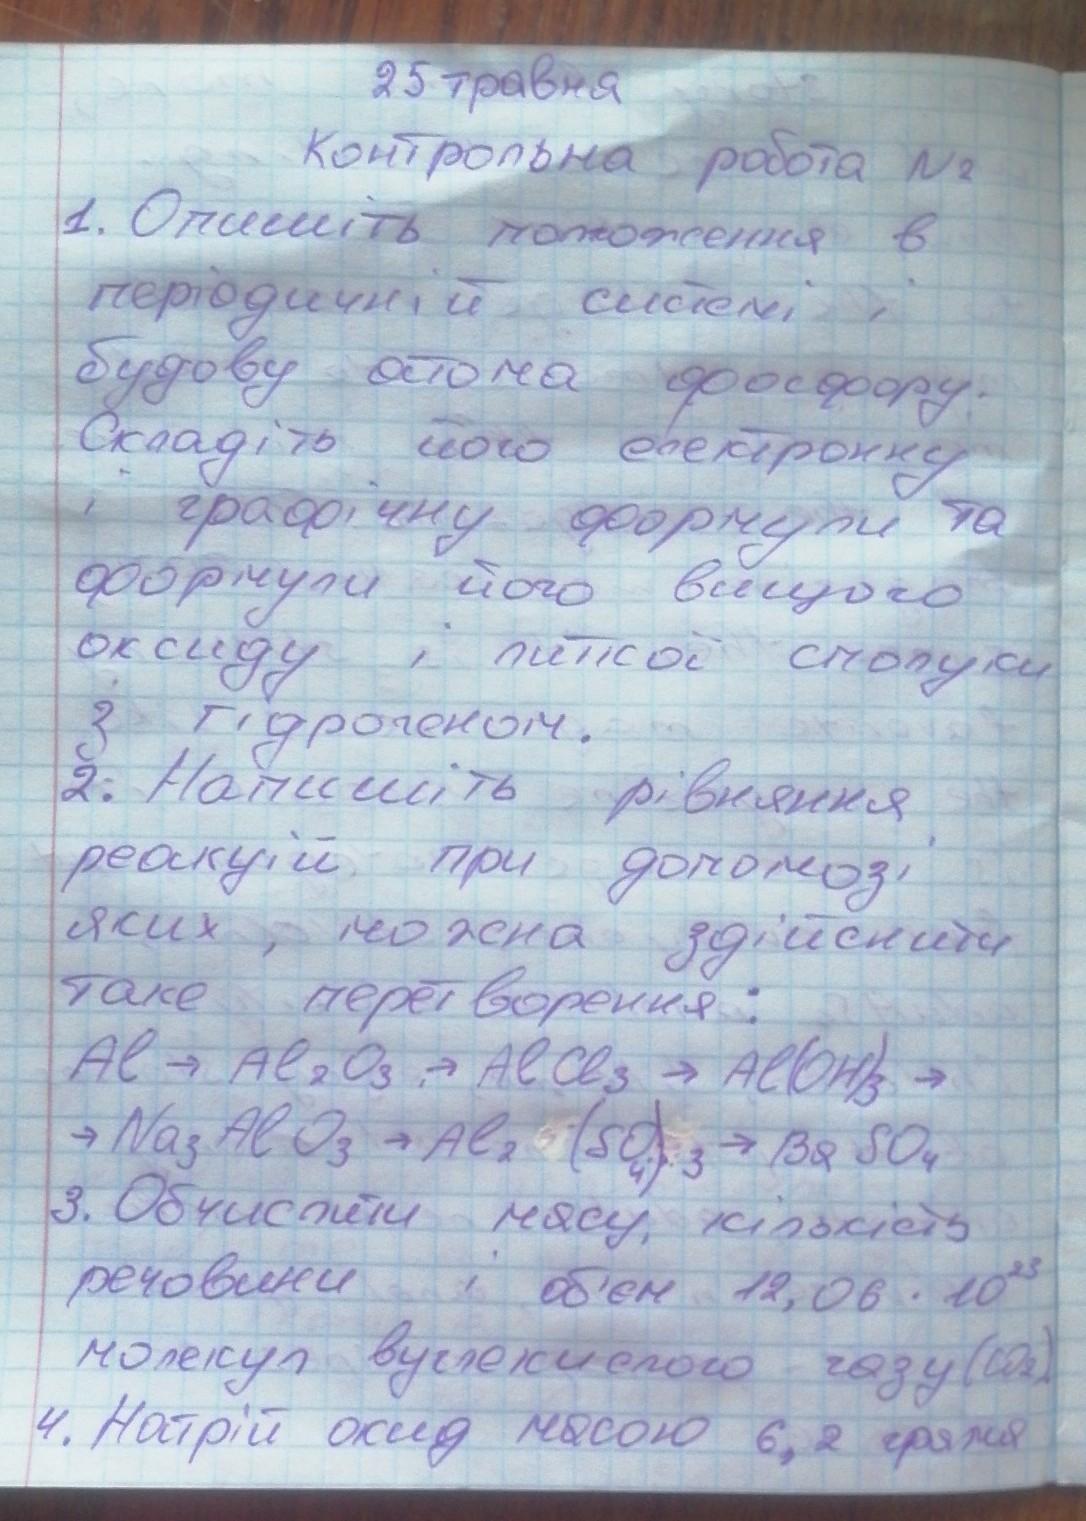 25 травня
Контрольна робота №2
1. Опишіть положення в
періодичній системі і
будову атома фосфору.
Складіть його електронну
і графічну формули та
формули його вищого
оксиду і липкої сполуки
з Гідрогеном.
2. Напишіть рівняння
реакцій при допомозі
яких, можна здійснити
таке перетворення:
Al → Al₂O₃ → AlCl₃ → Al(OH)₃ →
→ Na₃AlO₃ → Al₂(SO₄)₃ → BaSO₄
3. Обчислити масу, кількість
речовини і об'єм 12,06 · 10²³
молекул вуглекислого газу (CO₂)
4. Натрій оксид масою 6,2 грама